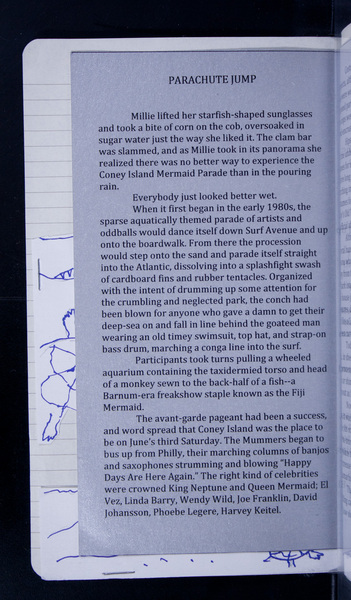 PARACHUTE JUMP
Millie lifted her starfish-shaped sunglasses
and took a bite of corn on the cob, oversoaked in
sugar water just the way she liked it. The clam bar
was slammed, and as Millie took in its panorama she
realized there was no better way to experience the
Coney Island Mermaid Parade than in the pouring
rain.
Everybody just looked better wet.
When it first began in the early 1980s, the
sparse aquatically themed parade of artists and
oddballs would dance itself down Surf Avenue and up
onto the boardwalk. From there the procession
would step onto the sand and parade itself straight
into the Atlantic, dissolving into a splashfight swash
of cardboard fins and rubber tentacles. Organized
with the intent of drumming up some attention for
the crumbling and neglected park, the conch had
been blown for anyone who gave a damn to get their
deep-sea on and fall in line behind the goateed man
wearing an old timey swimsuit, top hat, and strap-on
bass drum, marching a conga line into the surf.
Participants took turns pulling a wheeled
aquarium containing the taxidermied torso and head
of a monkey sewn to the back-half of a fish--a
Barnum-era freakshow staple known as the Fiji
Mermaid.
The avant-garde pageant had been a success,
and word spread that Coney Island was the place to
be on June's third Saturday. The Mummers began to
bus up from Philly, their marching columns of banjos
and saxophones strumming and blowing "Happy
Days Are Here Again." The right kind of celebrities
were crowned King Neptune and Queen Mermaid; El
Vez, Linda Barry, Wendy Wild, Joe Franklin, David
Johansson, Phoebe Legere, Harvey Keitel.